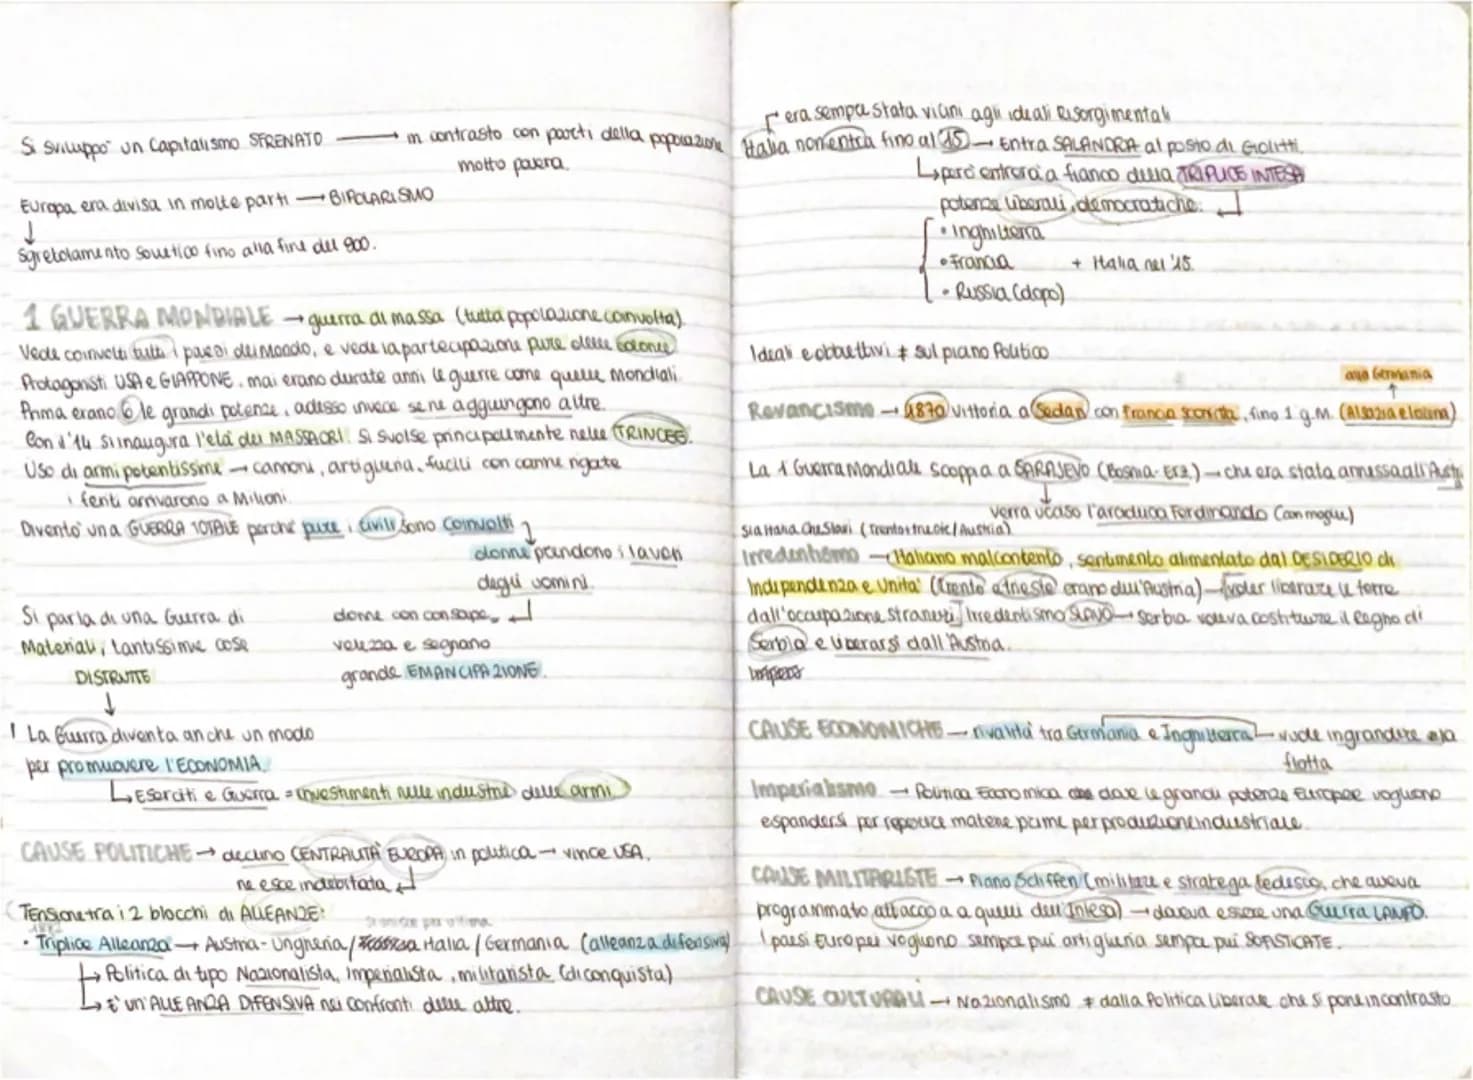 Si sviluppò un Capitalismo SFRENATO → in contrasto con parti della popolazione
molto povera.
Europa era divisa in molte parti → BIPOLARISMO
↓
Sgretolamento Sovietico fino alla fine del 900.
1 GUERRA MONDIALE → guerra di massa (tutta popolazione coinvolta)
Vede coinvolti tutti i paesi del Mondo, e vede la partecipazione pure delle colonie
Protagonisti USA e GIAPPONE. mai erano durate anni le guerre come quelle Mondiali.
Prima erano 6 le grandi potenze, adesso invece se ne aggiungono altre.
Con il '14 si inaugura l'età dei MASSACRI. Si svolse principalmente nelle TRINCEE.
Uso di armi potentissime → cannoni, artiglieria, fucili con canne rigate
i feriti arrivarono a Milioni.
Diventò una GUERRA TOTALE perché pure i civili sono Coinvolti
donne prendono i lavori
degli uomini.
Si parla di una Guerra di
donne con consape-
Materiali, tantissime cose
volezza e segnano
DISTRUTTE
grande EMANCIPAZIONE.
↓
! La Guerra diventa anche un modo
per promuovere l'ECONOMIA.
↳ Eserciti e Guerra = investimenti nelle industrie delle armi
CAUSE POLITICHE → declino CENTRALITÀ EUROPA in politica → vince USA.
ne esce indebitata
Tensione tra i 2 blocchi di ALLEANZE:
1882
• Triplice Alleanza → Austria-Ungheria / Italia / Germania (alleanza difensiva)
↳ Politica di tipo Nazionalista, Imperialista, militarista (di conquista)
↳ E' un'ALLEANZA DIFENSIVA nei confronti delle altre.
era sempre stata vicini agli ideali Risorgimentali
Italia non entra fino al 15 → Entra SALANDRA al posto di Giolitti.
↳ però entrerà a fianco della TRIPLICE INTESA
potenze liberali, democratiche.
• Inghilterra
• Francia + Italia nel '15.
• Russia (dopo)
Ideali e obbiettivi ≠ sul piano Politico
alla Germania
↑
Revancismo → 1870 vittoria a Sedan con Francia sconfitta, fino 1 g.M. (Alsazia e lorena)
La 1 Guerra Mondiale scoppia a SARAJEVO (Bosnia-Erz.) → che era stata annessa all'Austri
↓
verrà ucciso l'arciduca Ferdinando (con moglie)
sia Italia che Slavi (trento+trieste/Austria)
Irredentismo → Italiano malcontento, sentimento alimentato dal DESIDERIO di
Independenza e Unità (Trento e trieste erano dell'Austria) → voler liberare le terre
dall'occupazione straniera] Irredentismo SLAVO → Serbia voleva costituire il Regno di
Serbia e liberarsi dall'Austria.
CAUSE ECONOMICHE → rivalità tra Germania e Inghilterra → vuole ingrandire
flotta
Imperialismo → Politica Economica dove le grandi potenze Europee vogliono
espandersi per reperire materie prime per produzione industriale.
CAUSE MILITARISTE → Piano Schliffen (militare e stratega tedesco, che aveva
programmato attacco a quelli dell'Intesa) → doveva essere una Guerra LAMPO.
I paesi Europei vogliono sempre più artiglieria sempre più SOFISTICATE.
CAUSE CULTURALI → Nazionalismo ≠ dalla Politica Liberale che si pone in contrasto